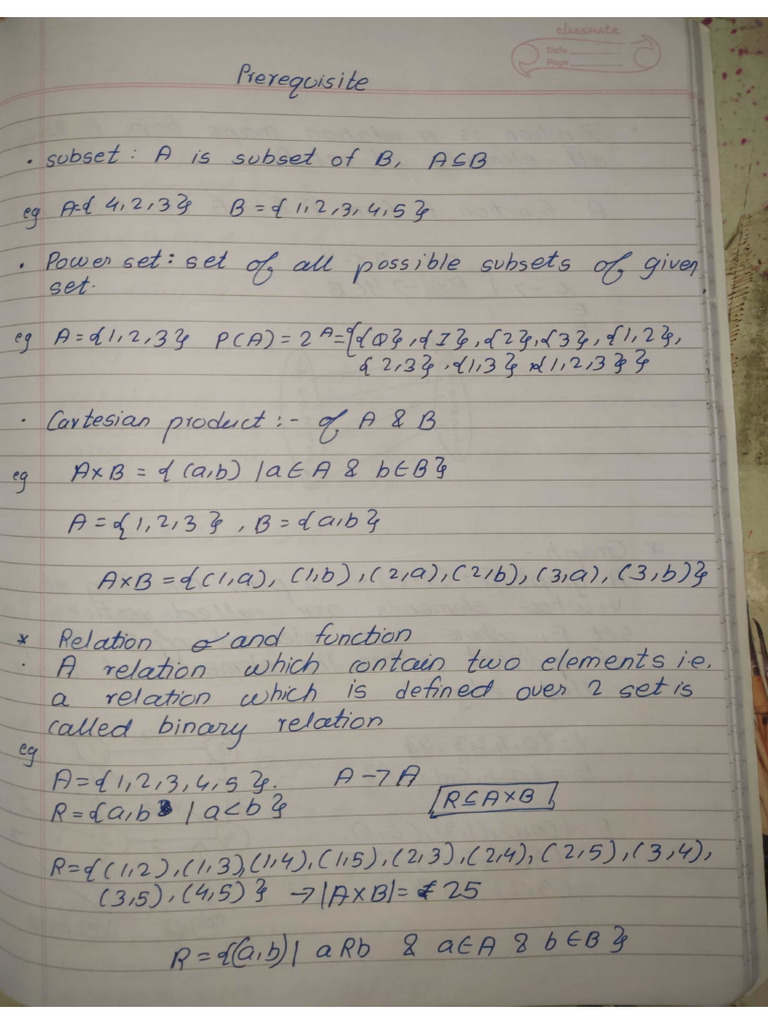 classmate
Date
Page
Prerequisite
• subset : A is subset of B, A⊆B
eg A={ 4,2,3} B = {1,2,3,4,5}
• Power set : set of all possible subsets of given
set.
eg A = {1,2,3} P(A) = 2^A = {{Φ}, {1}, {2}, {3}, {1,2},
{2,3}, {1,3}, {1,2,3}}
• Cartesian product :- of A & B
eg A×B = { (a,b) | a∈A & b∈B}
A = {1,2,3}, B = {a,b}
A×B = {(1,a), (1,b), (2,a), (2,b), (3,a), (3,b)}
* Relation and function
• A relation which contain two elements i.e.
a relation which is defined over 2 set is
called binary relation
eg
A = {1,2,3,4,5}. A → A
R = {a,b | a<b} R⊆A×B
R = {(1,2), (1,3) (1,4), (1,5), (2,3), (2,4), (2,5), (3,4),
(3,5), (4,5)} → |A×B| = 25
R = {(a,b) | aRb & a∈A & b∈B}